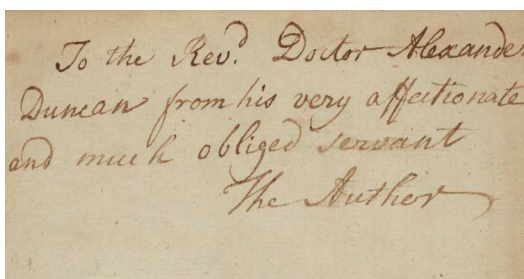 To the Rev.d Doctor Alexander
Duncan from his very affectionate
and much obliged servant
The Author